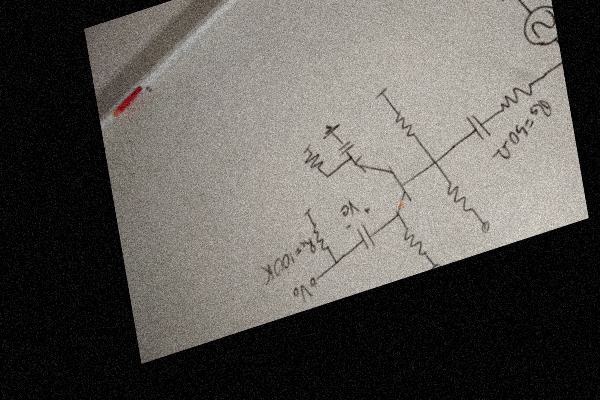 RG=50Ω
+ Vc -
RL=100K
Vo